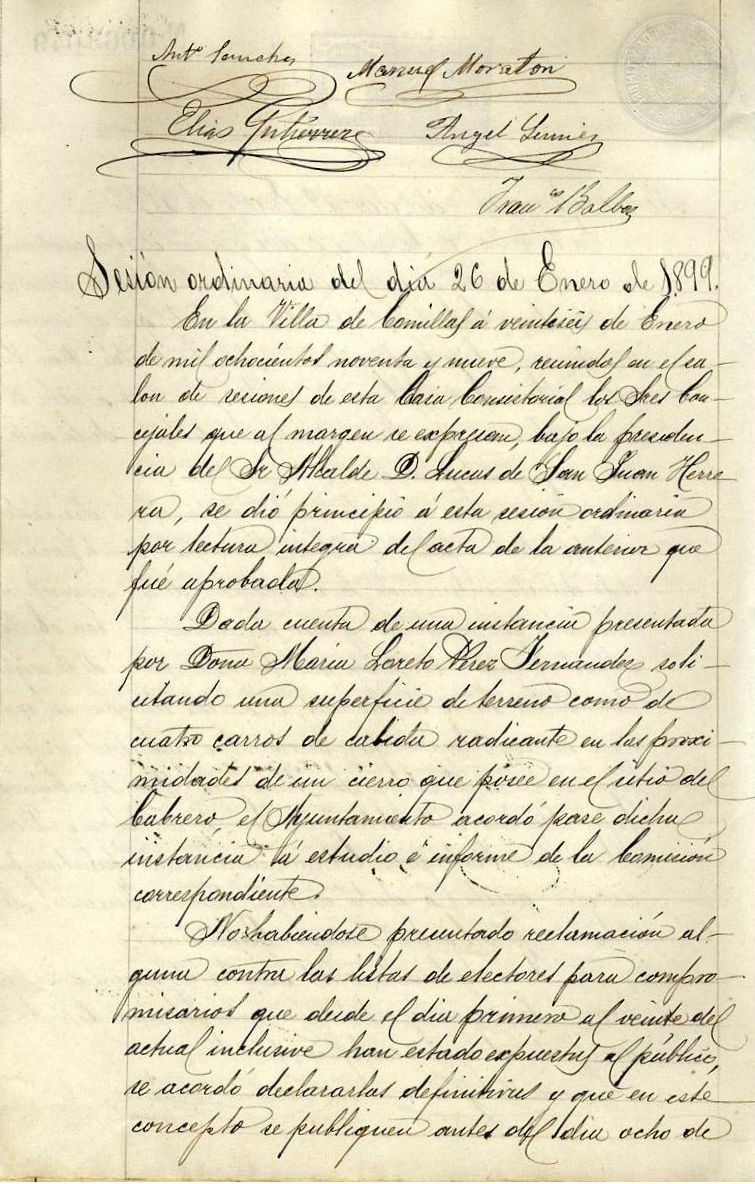 Antº Sanchez Manuel Moraton
Elias Gutiérrez Angel
Franco Balbas
Sesión ordinaria del dia 26 de Enero de 1.899.
En la Villa de Comillas á veintiseis de Enero
de mil ochocientos noventa y nueve, reunidos en el sa-
lon de sesiones de esta Casa Consistorial los Sres Con-
cejales que al margen se expresan, bajo la presiden-
cia del Sr Alcalde D. Lucas de San Juan Herre
ra, se dió principio á esta sesión ordinaria
por lectura integra del acta de la anterior que
fué aprobada.
Dada cuenta de una instancia presentada
por Doña Maria Loreto Perez Fernandez soli-
citando una superficie de terreno como de
cuatro carros de cabida radicante en las proxi-
midades de un cierro que posee en el sitio del
Cabrero el Ayuntamiento acordó pase dicha
instancia á estudio é informe de la Comisión
correspondiente.
No habiendose presentado reclamación al-
guna contra las listas de electores para compro-
misarios que desde el dia primero al veinte del
actual inclusive han estado expuestas al público,
se acordó declararlas definitivas y que en este
concepto se publiquen antes del dia ocho de